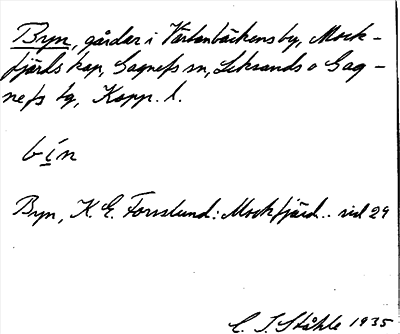 Byn, gårdar i Värtenbäckens by, Mock-
fjärds kap, Gagnefs sn, Leksands o Gag-
nefs tg, Kopp. l.
bín
Byn, K. E. Forslund: Mockfjärd.. sid 29
C. I. Ståhle 1935